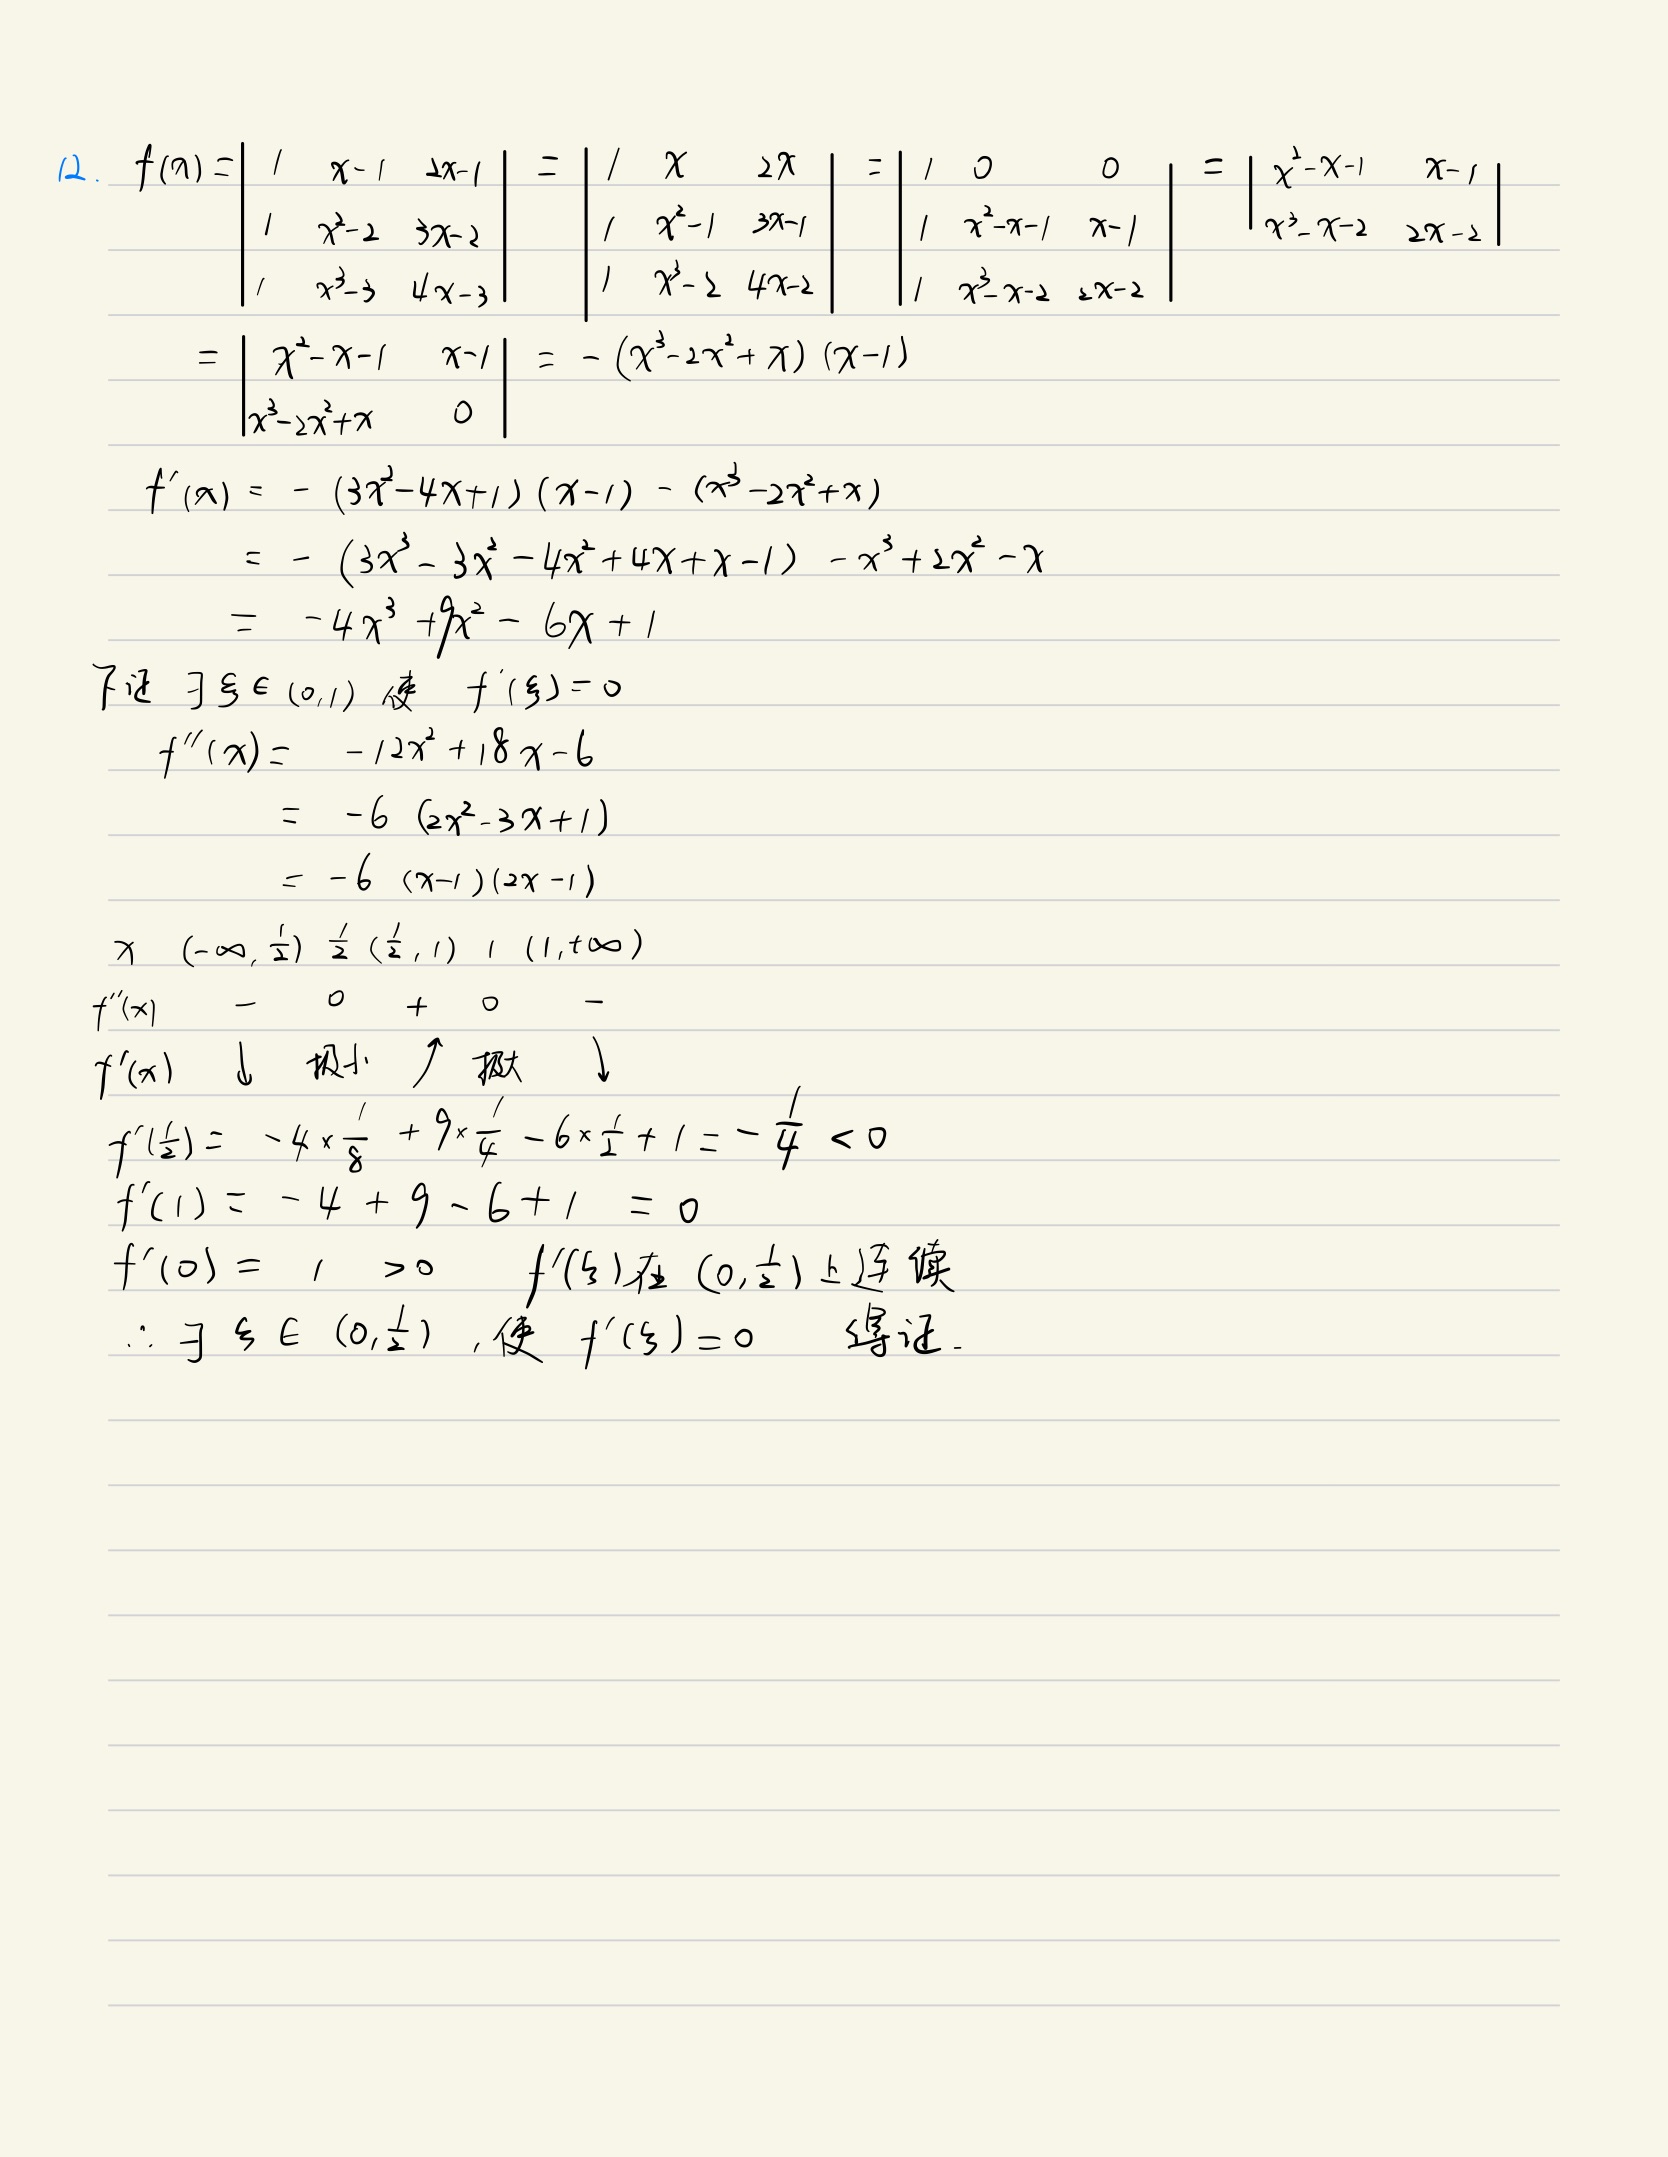 12. f(x) = | 1 x-1 2x-1 | = | 1 x 2x | = | 1 0 0 | = | x²-x-1 x-1 |
| 1 x²-2 3x-2 | | 1 x²-1 3x-1 | | 1 x²-x-1 x-1 | | x³-x-2 2x-2 |
| 1 x³-3 4x-3 | | 1 x³-2 4x-2 | | 1 x³-x-2 2x-2 |
= | x²-x-1 x-1 | = -(x³-2x²+x)(x-1)
| x³-2x²+x 0 |
f'(x) = -(3x²-4x+1)(x-1) - (x³-2x²+x)
= -(3x³-3x²-4x²+4x+x-1) -x³+2x²-x
= -4x³+9x²-6x+1
下证 ∃ξ∈(0,1) 使 f'(ξ)=0
f''(x) = -12x²+18x-6
= -6 (2x²-3x+1)
= -6 (x-1)(2x-1)
x (-∞,1/2) 1/2 (1/2,1) 1 (1,+∞)
f''(x) - 0 + 0 -
f'(x) ↓ 极小 ↗ 极大 ↓
f'(1/2) = -4×1/8 +9×1/4 -6×1/2 +1 = -1/4 <0
f'(1) = -4+9-6+1 = 0
f'(0) = 1 >0 f'(ξ)在(0,1/2)上连续
∴∃ξ∈(0,1/2),使 f'(ξ)=0 得证.